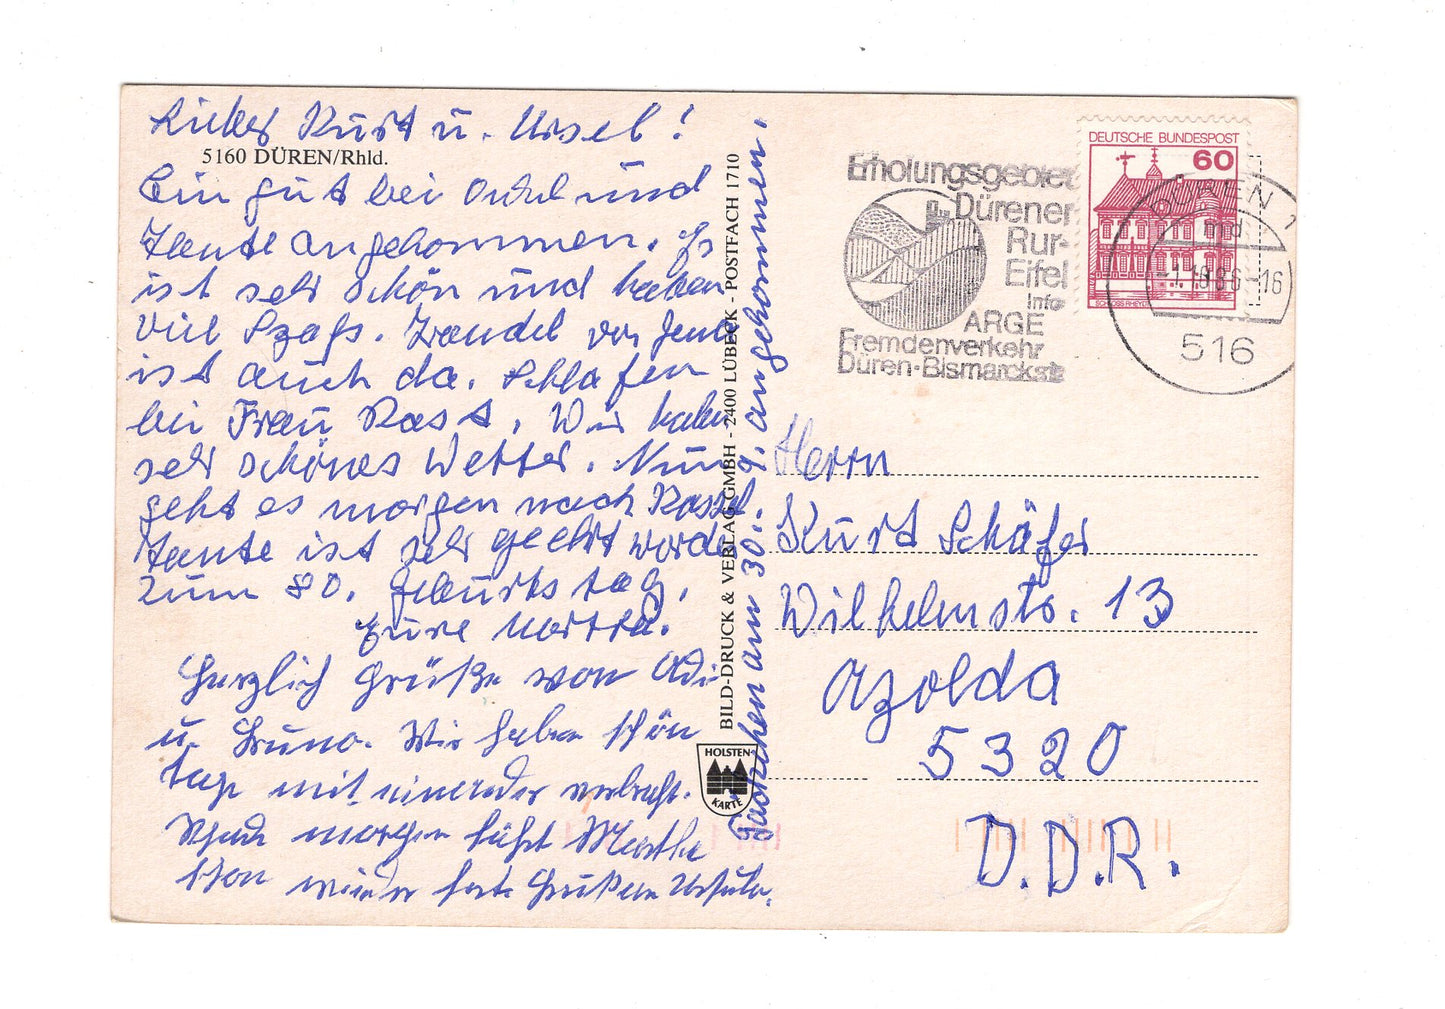 Lieber Kurt u. Ursel!
5160 DÜREN/Rhld.
Bin gut bei Onkel und
Tante angekommen. Es
ist sehr schön und haben
viel Spaß. Wandel von Jena
ist auch da. Schlafen
bei Frau Rast. Wir haben
sehr schönes Wetter. Nun
geht es morgen nach Kassel
Tante ist sehr geehrt worden
zum 80. Geburtstag.
Eure Martha.
Herzlich Grüße von Adi
u. Bruno. Wir haben schön
tage mit einander verbracht.
Schade morgen fährt Martha
schon wieder fort. Grüßen Ursula.
BILD-DRUCK & VERLAG GMBH - 2400 LÜBECK - POSTFACH 1710
HOLSTEN-
KARTE
am 30. 9. angekommen.
Erholungsgebiet
Dürener
Rur-
Eifel
Info
ARGE
Fremdenverkehr
Düren-Bismarckstr
DEUTSCHE BUNDESPOST
60
SCHLOSS RHEYDT
DÜREN 1
md
-1.10.86-16
516
Herrn
Kurt Schäfer
Wilhelmstr. 13
Apolda
5320
D.D.R.